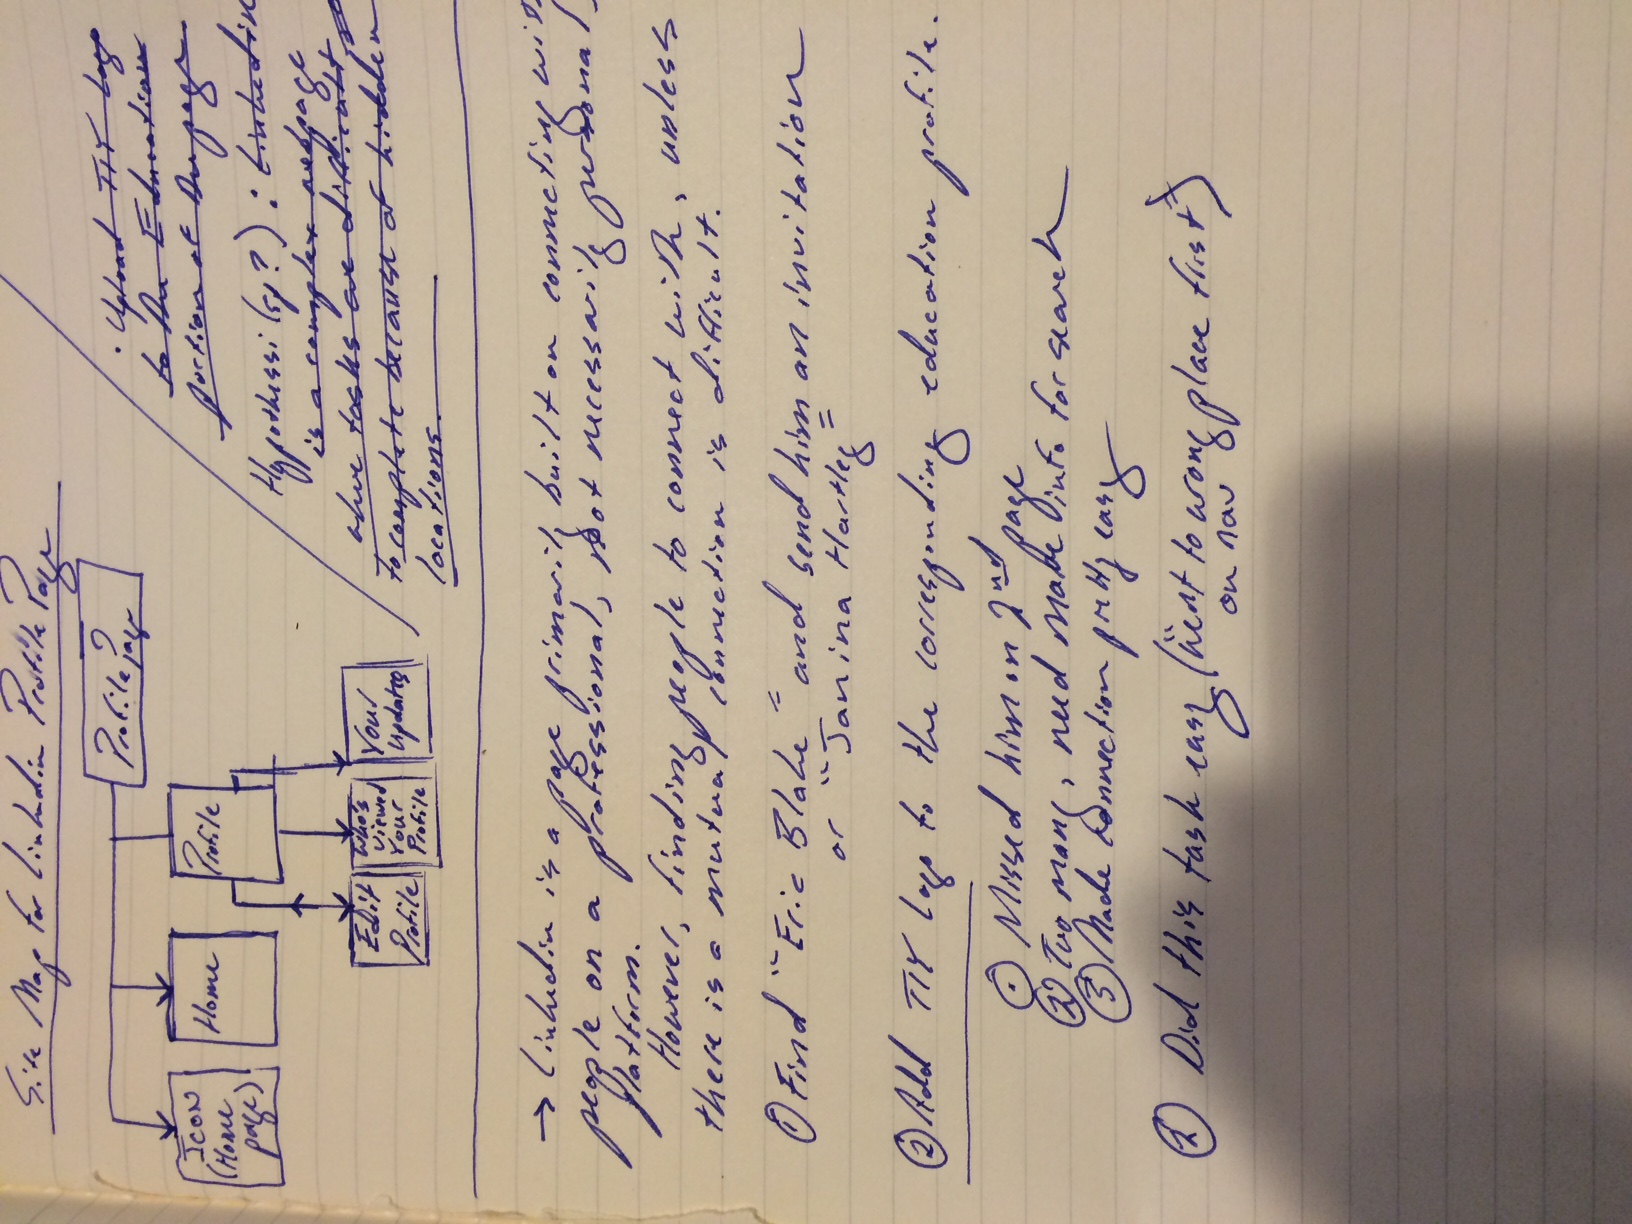 Site Map for Linkedin Profile Page
Profile Page
ICON
(Home
page)
Home
Profile
Edit
Profile
Who's
Viewed
Your
Profile
Your
Updates
· Upload TIY Logo
to the Education
portion of the page
Hypothessi (sp?) : Linkedin
is a complex webpage
where tasks are difficult
to complete because of hidden
locations.
→ Linkedin is a page primarily built on connecting with
people on a professional, not necessarily personal,
platform.
However, finding people to connect with, unless
there is a mutual connection is difficult.
① Find "Eric Blake" and send him an invitation
or "Janina Hartley"
② Add TIY Logo to the corresponding education profile.
① Missed him on 2nd page
② Too many, need more info for search
③ Made connection pretty easy
② Did this task easy ("Went to wrong place first")
on nav